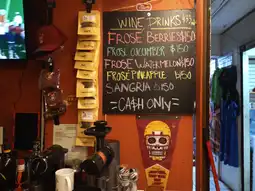 WINE DRINKS
FROSE BERRIES $150
FROSE CUCUMBER $150
FROSE WATERMELON $150
FROSE PINEAPPLE $150
SANGRIA $150
=CASH ONLY=